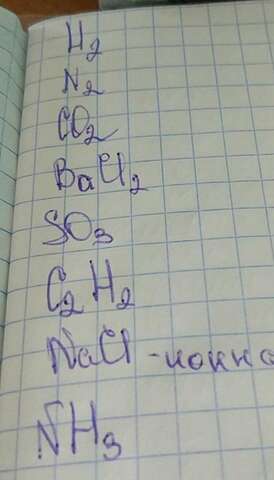 H2
N2
CO2
BaCl2
SO3
C2H2
NaCl - ионна
NH3